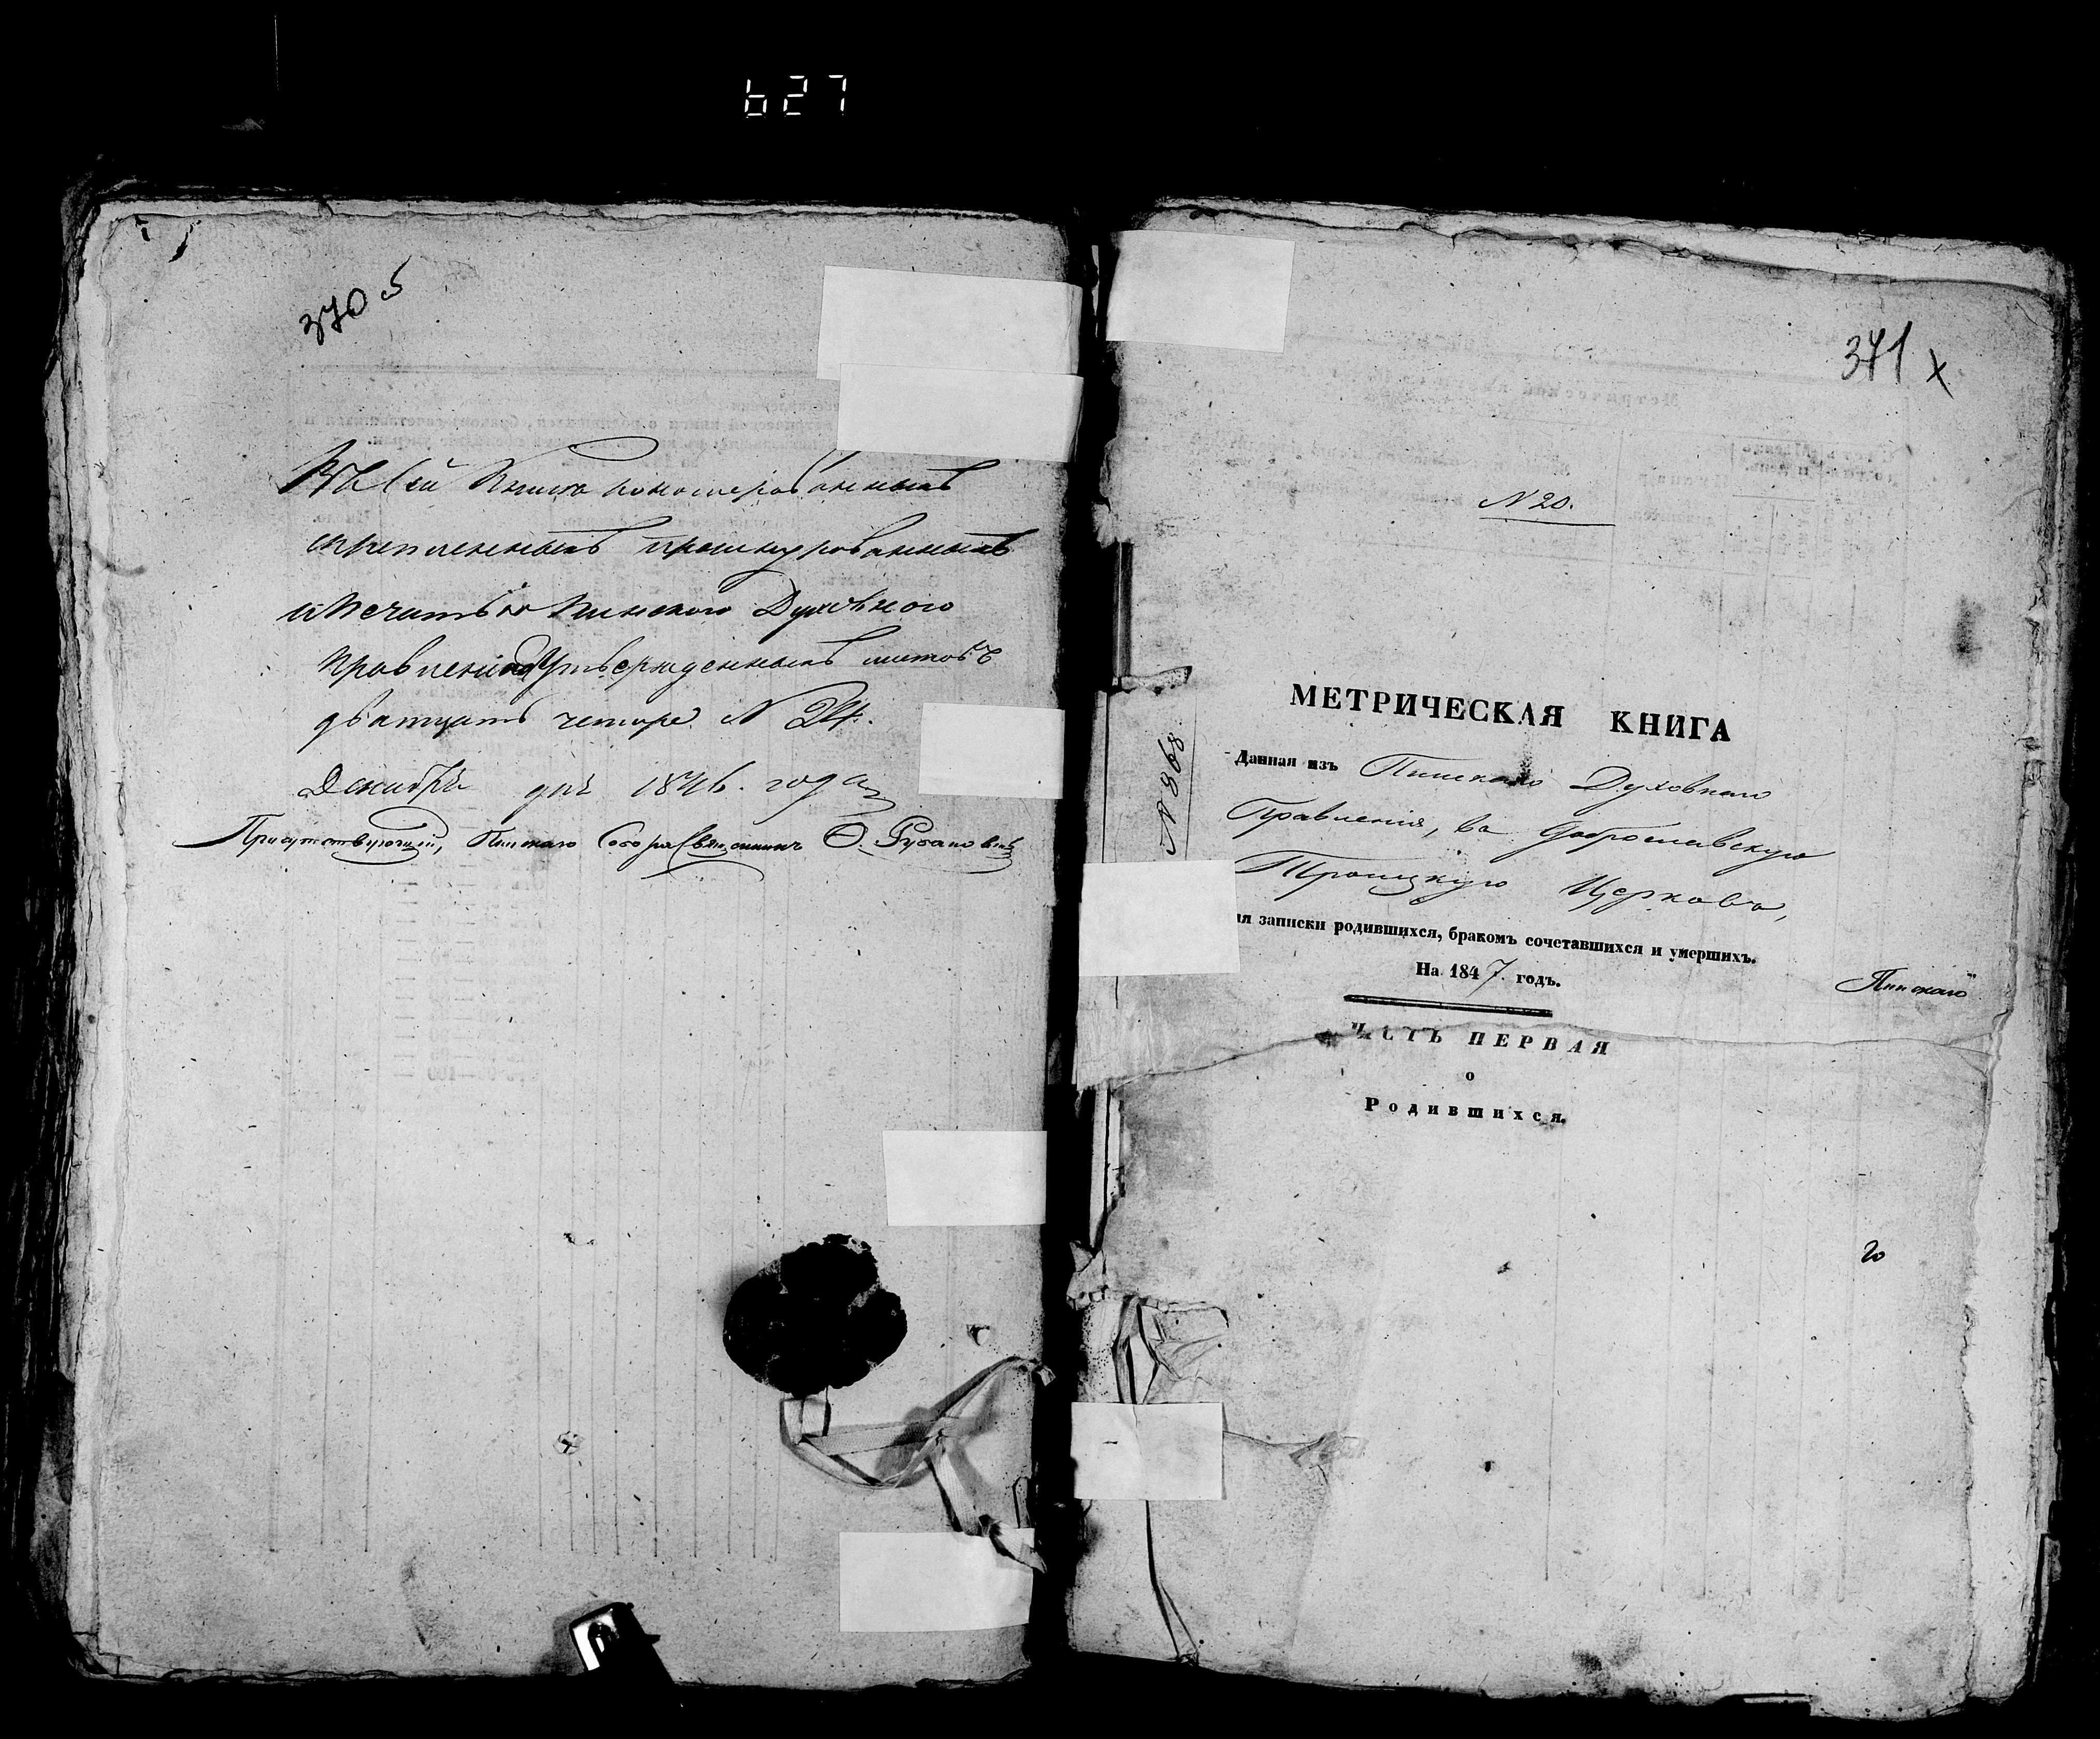 627
370 об
Въ сей Книгѣ пономерованныхъ
скрепленныхъ прошнурованныхъ
и Печатью Пинского Духовного
Правленія Утвержденныхъ листовъ
дватцать четыре N 24.
Декабря дня 1846. года
Присутствующій, Пинскаго Собора Священникъ Ѳ. Рубановичь
371 х
N 20.
N 868
МЕТРИЧЕСКАЯ КНИГА
Данная изъ Пинскаго Духовнаго
Правленія, въ Доброславскую
Троицкую Церковь,
ля записки родившихся, бракомъ сочетавшихся и умершихъ.
На 1847 годъ.
Пинскаго
ЧАСТЬ ПЕРВАЯ
о
Родившихся.